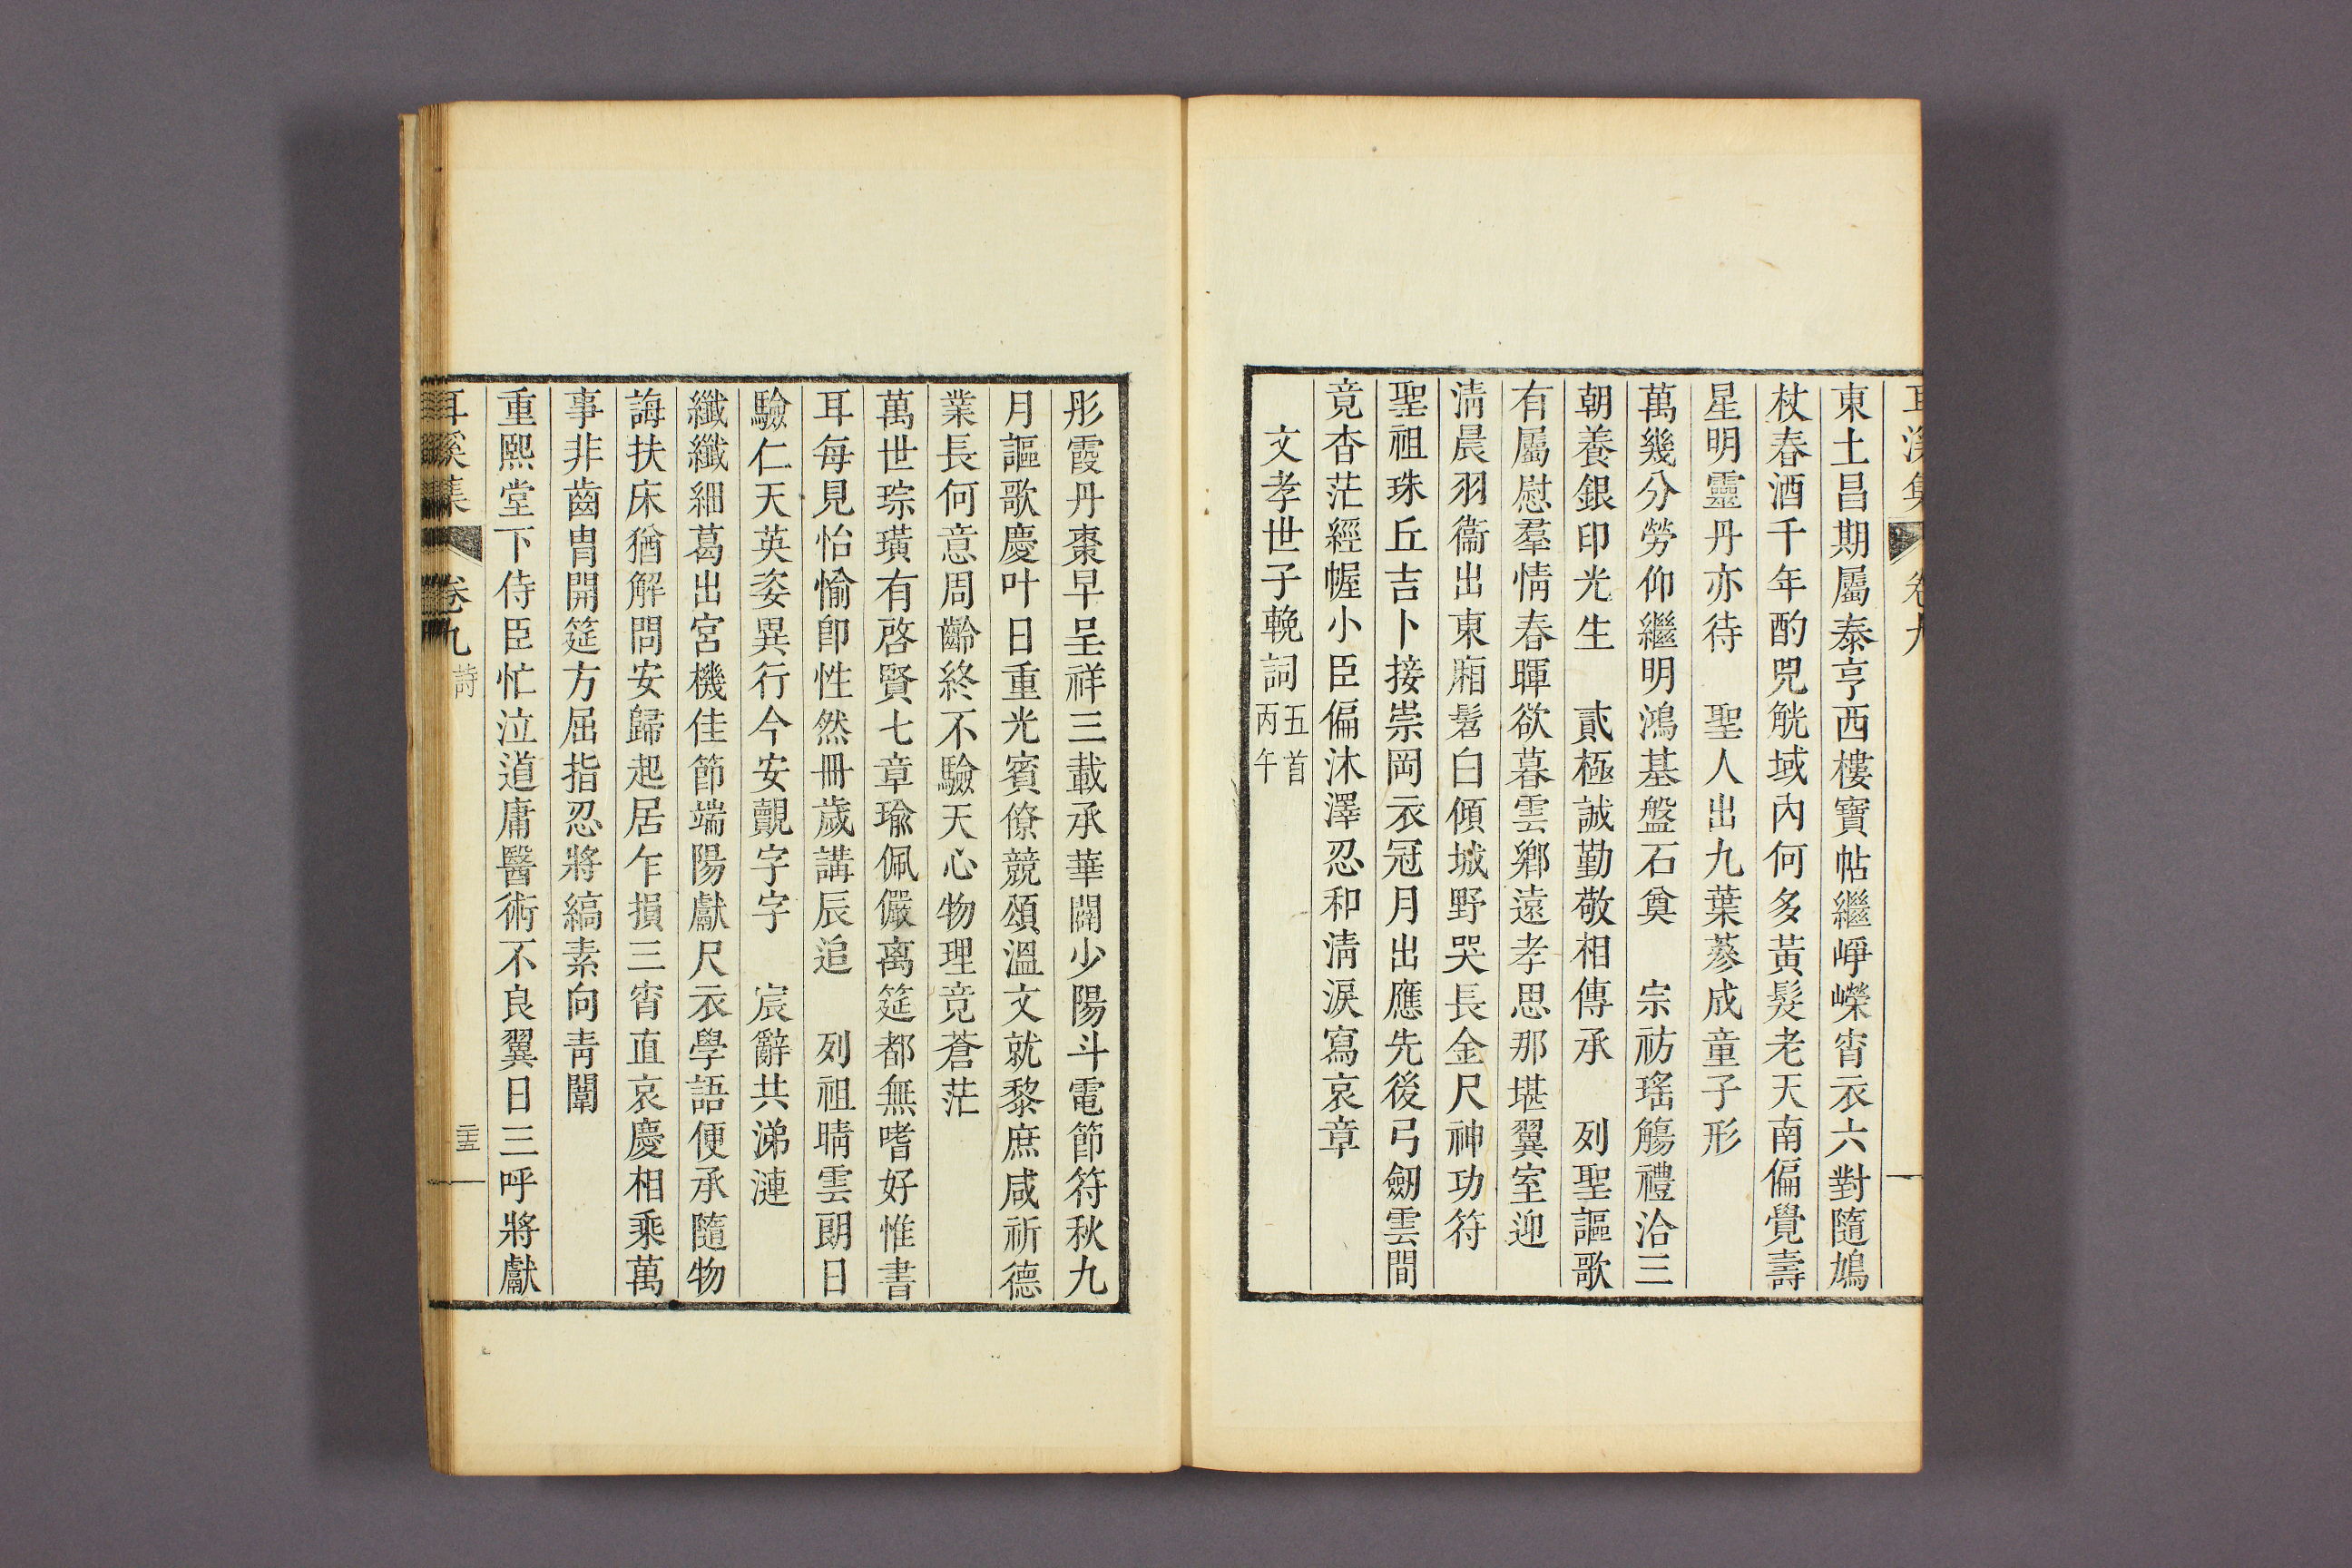 耳溪集 卷九
東土昌期屬泰亨西樓寶帖繼崢嶸宵衣六對隨鳩
杖春酒千年酌兕觥域內何多黃髮老天南偏覺壽
星明靈丹亦待 聖人出九葉蔘成童子形
萬幾分勞仰繼明鴻基盤石奠 宗祊瑤觴禮洽三
朝養銀印光生 貳極誠勤敬相傳承 列聖謳歌
有屬慰羣情春暉欲暮雲鄉遠孝思那堪翼室迎
淸晨羽衞出東廂髫白傾城野哭長金尺神功符
聖祖珠丘吉卜接崇岡衣冠月出應先後弓劒雲間
竟杳茫經幄小臣偏沐澤忍和淸淚寫哀章
文孝世子輓詞 五首 丙午
彤霞丹棗早呈祥三載承華闢少陽斗電節符秋九
月謳歌慶叶日重光賓僚競頌溫文就黎庶咸祈德
業長何意周齡終不驗天心物理竟蒼茫
萬世琮璜有啓賢七章瑜佩儼离筵都無嗜好惟書
耳每見怡愉卽性然冊歲講辰追 列祖晴雲朗日
驗仁天英姿異行今安覿字字 宸辭共涕漣
纖纖細葛出宮機佳節端陽獻尺衣學語便承隨物
誨扶床猶解問安歸起居乍損三宵直哀慶相乘萬
事非齒胄開筵方屈指忍將縞素向靑闈
重熙堂下侍臣忙泣道庸醫術不良翼日三呼將獻
耳溪集 卷九 詩 二十五